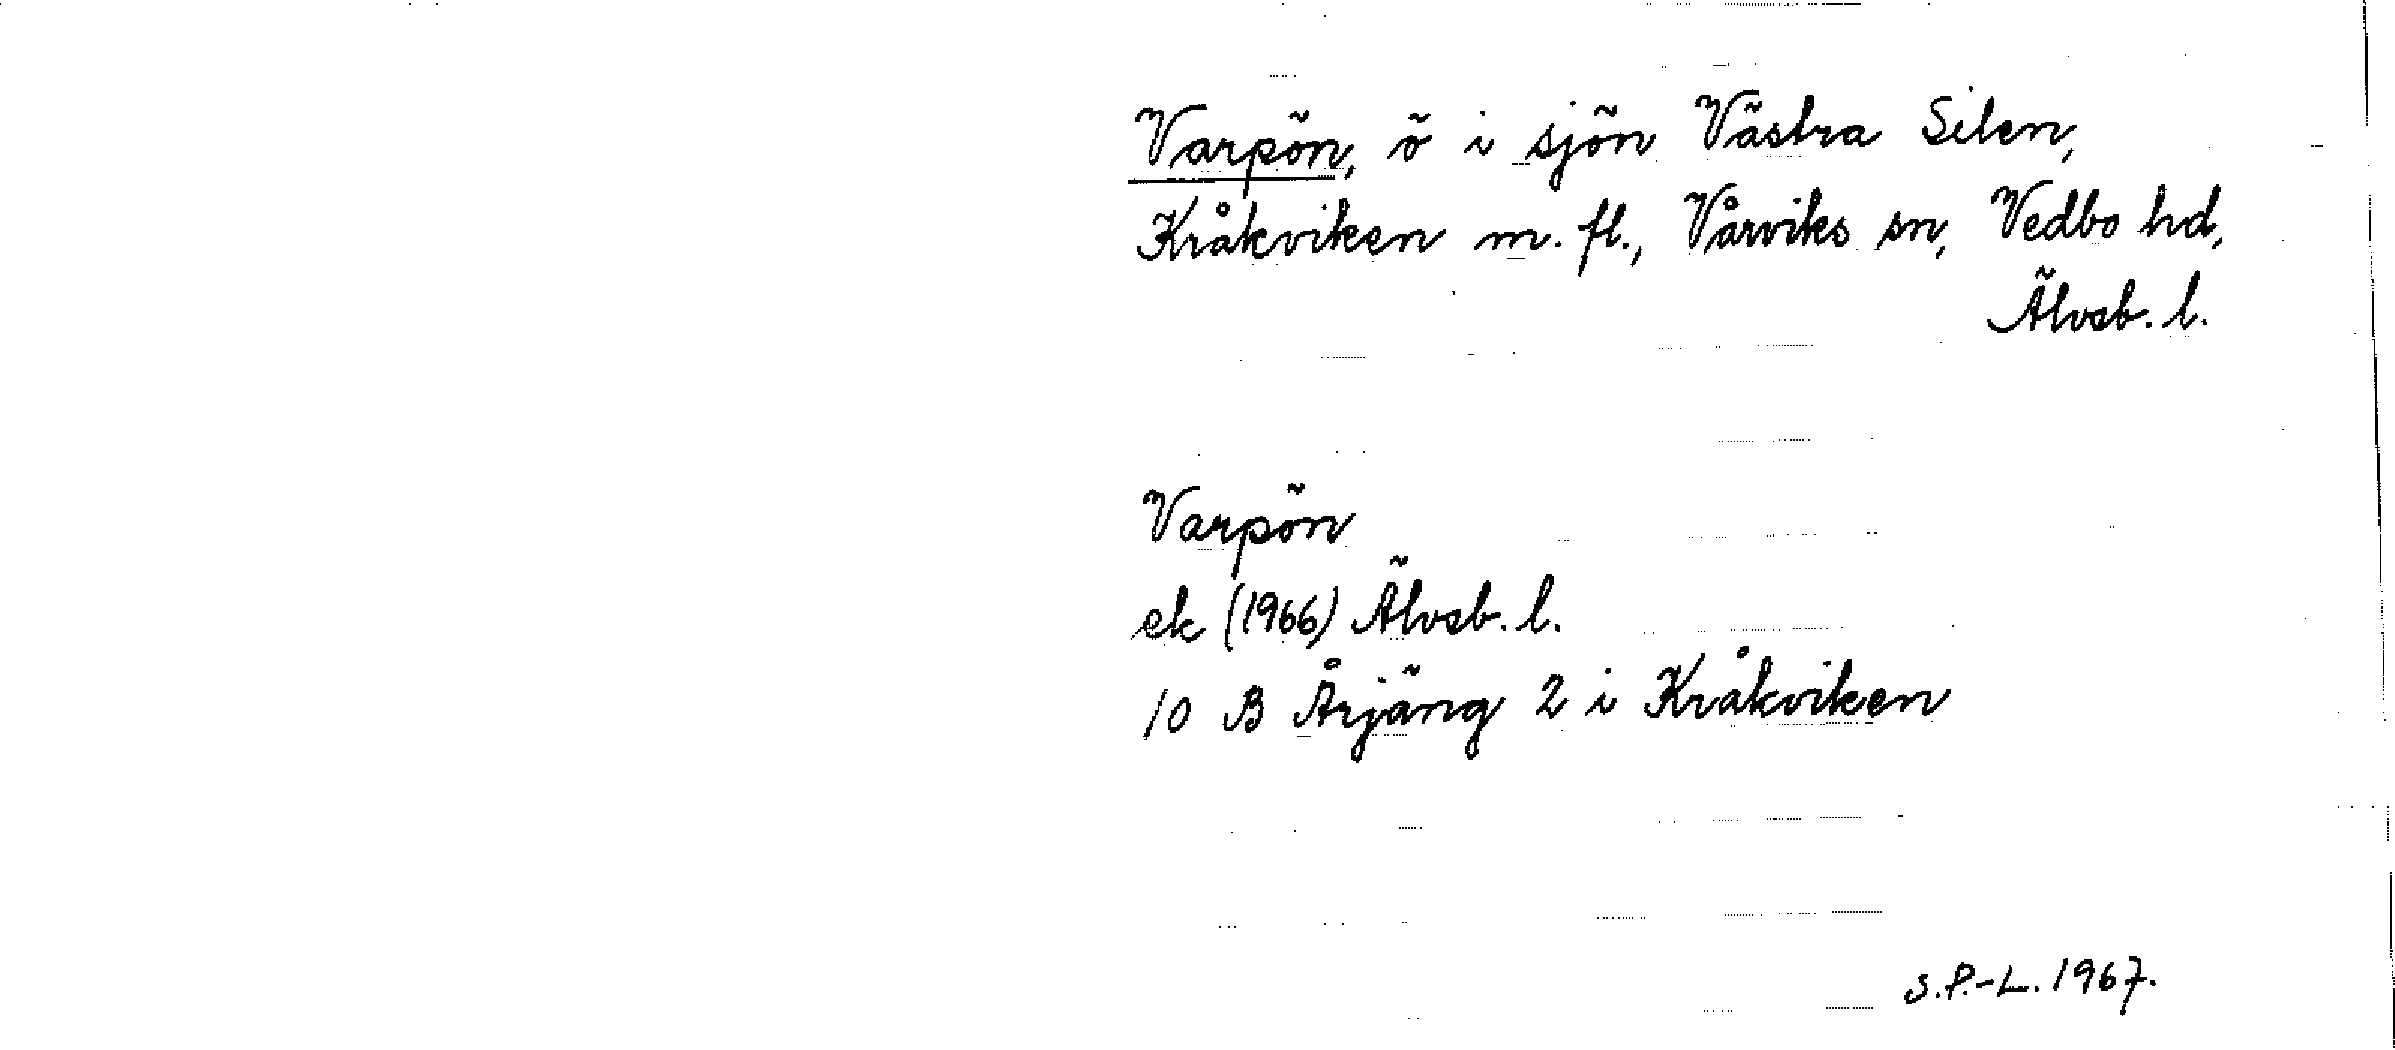 Varpön, ö i sjön Västra Silen,
Kråkviken m. fl., Vårviks sn, Vedbo hd,
Älvsb. l.
Varpön
ek (1966) Älvsb. l.
10 B Årjäng 2 i Kråkviken
S.P.-L. 1967.